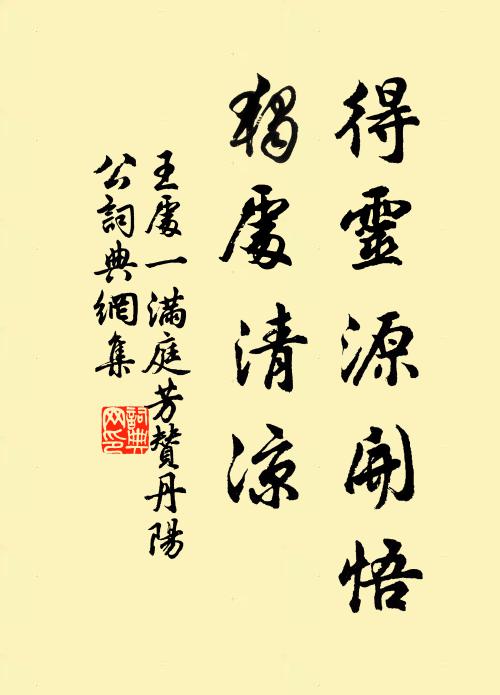 得靈源開悟
獨處清涼
王處一滿庭芳贊丹陽
公詞典網集
詞典网印